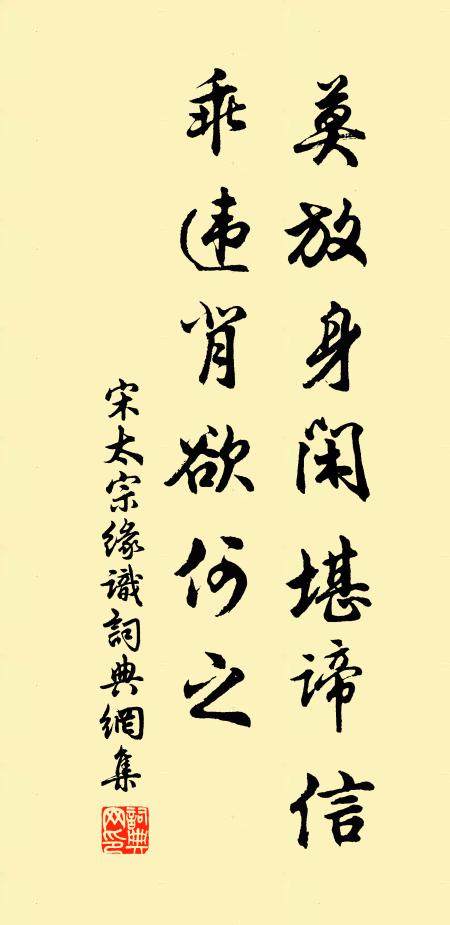 莫放身闲堪谛信
乖违背欲何之
宋太宗缘識詞典網集
詞典网印